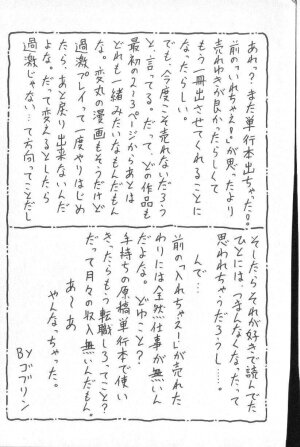 あれっ?また単行本出ちゃった!!
前の「いれちゃえ!」が思ったより
売れゆきが良かったらしくて
もう一冊出させてくれることに
なったらしい。
でも、今度こそ売れないだろう
と言ってる。だって、どの作品も
最初の2~3ページからあとは
どれも一緒みたいなもんだもん
な。変丸の漫画もそうだけど
過激プレイって一度やりはじめ
たら、あと戻り出来ないんだ
よな。だって変えるとしたら
過激じゃない…て方向ってことだし
そしたらそれが好きで読んでた
ひとには、「つまんなくなった」って
思われちゃうだろうし……。
んで…
前の「入れちゃえー!」が売れた
わりには全然仕事が無いん
だよな。どゆこと?
手持ちの原稿単行本で使い
きったらもう転職しろってこと?
だって月々の収入無いんだもん。
あ〜あ
やんなっちゃった。
BYゴブリン